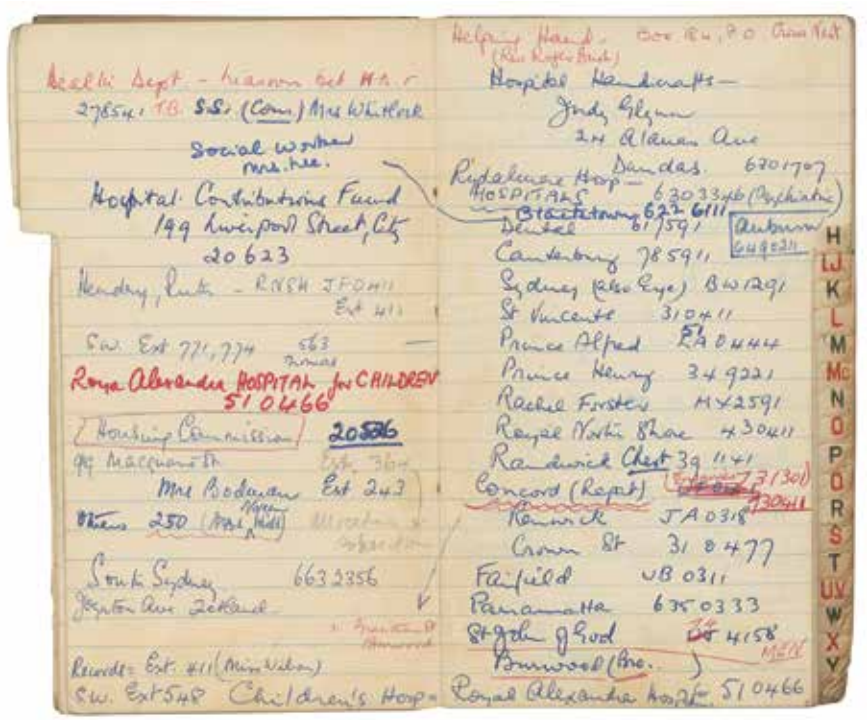 Health Dept. -
278541 T.B. S.S. (Com.) Mrs Whitlock
Social Worker
Mrs. Lee.
Hospital Contributions Fund
199 Liverpool Street, City
20623
Hendry, Ruth - RNSH JF0411
Ext 411
S.W. Ext 771, 774 563
Thomas
Royal Alexandra HOSPITAL for CHILDREN
510466
Housing Commission 20526
99 Macquarie St Ext. 364
Mrs Bodman Ext 243
Others 250 (Mrs Hill)
South Sydney 663 2356
Joynton Ave Zetland
Records = Ext. 411 (Miss Wilson)
S.W. Ext 548 Children's Hosp -
Helping Hand. Box 184, P.O. Crows Nest
(Rev Roger Bush)
Hospital Handicrafts -
Judy Glynn
24 Alanas Ave
Dundas. 6301707
Rydalmere Hosp -
HOSPITALS 6303346 (Psychiatric)
Blacktown 622 6111
Dental 617591
Auburn
6490211
Canterbury 785911
Sydney (also Eye) BW1291
St Vincents 310411
Prince Alfred 51 LA0444
Prince Henry 349221
Rachel Forster MX2591
Royal North Shore 430411
Randwick Chest 391141
Concord (Repat) 731301
730411
Renwick JA0318
Crown St 310477
Fairfield UB 0311
Parramatta 6350333
St John of God 74 4158
MEN
Burwood (Bro. )
Royal Alexandra Hosp - 510466
H
IJ
K
L
M
Mc
N
O
P
Q
R
S
T
UV
W
X
Y